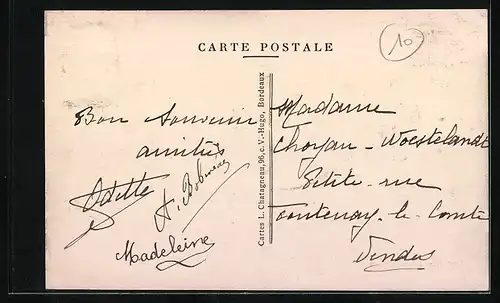 CARTE POSTALE
10
Bon Souvenir
amitiés
Odette
Madeleine
Cartes L. Chatagneau, 96, c. V.-Hugo, Bordeaux
Madame
Petite rue
Fontenay-le-Comte
Vendée